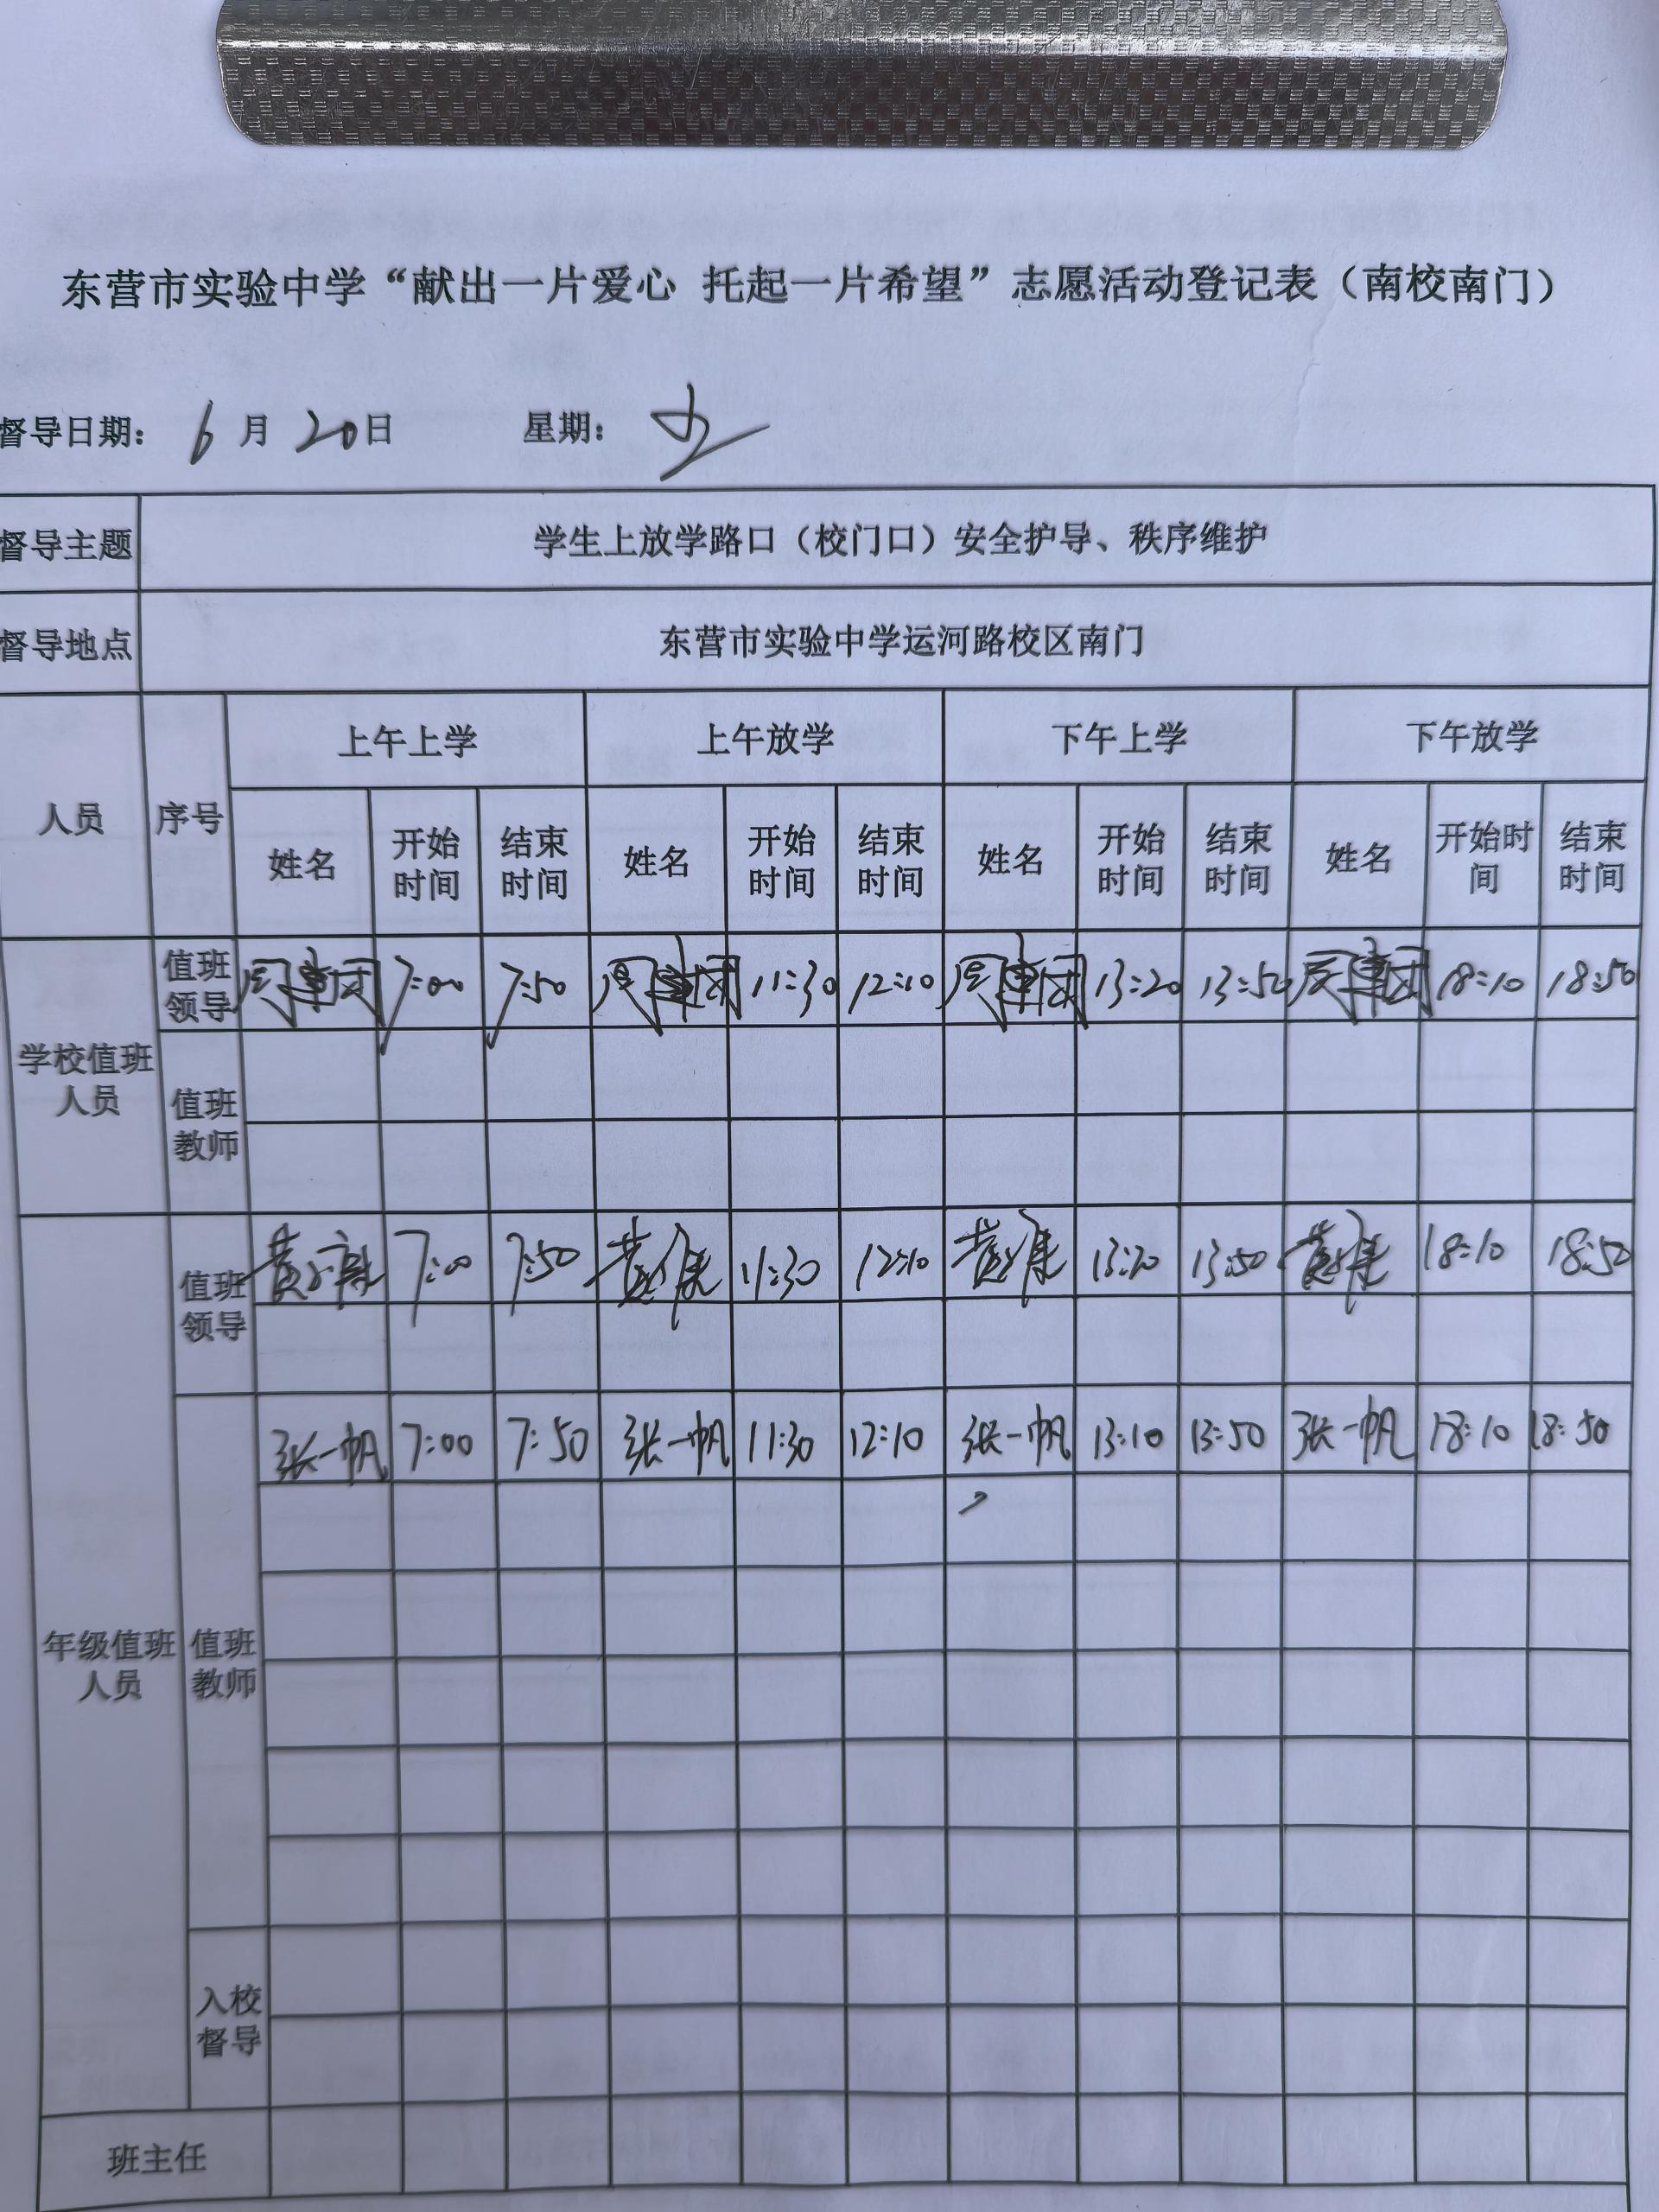 东营市实验中学“献出一片爱心 托起一片希望”志愿活动登记表（南校南门）
督导日期： 6 月 20 日 星期：
督导主题 学生上放学路口（校门口）安全护导、秩序维护
督导地点 东营市实验中学运河路校区南门
人员 序号 上午上学 上午放学 下午上学 下午放学
姓名 开始时间 结束时间 姓名 开始时间 结束时间 姓名 开始时间 结束时间 姓名 开始时间 结束时间
学校值班人员 值班领导 7:00 7:50 11:30 12:10 13:20 13:50 18:10 18:50
值班教师
年级值班人员 值班领导 7:00 7:50 11:30 12:10 13:20 13:50 18:10 18:50
值班教师 张一帆 7:00 7:50 张一帆 11:30 12:10 张一帆 13:10 13:50 张一帆 18:10 18:50
入校督导
班主任